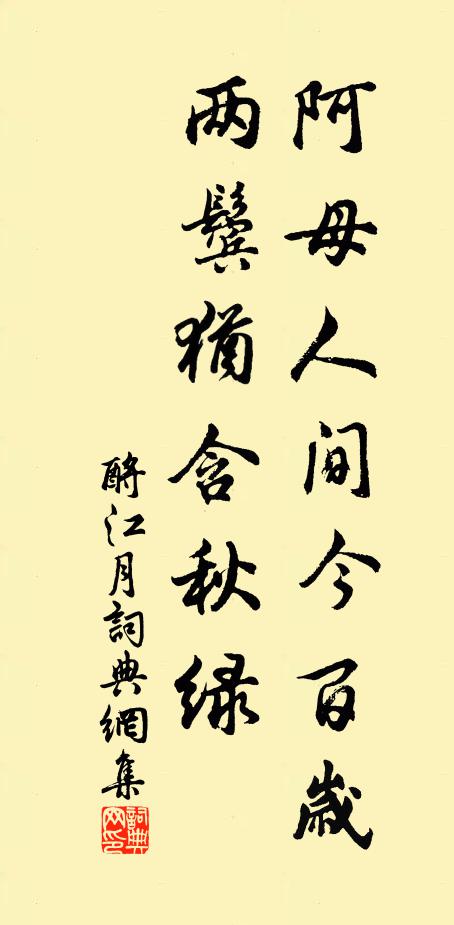 阿母人间今百岁
两鬓犹含秋绿
酹江月词典網集
詞典网印